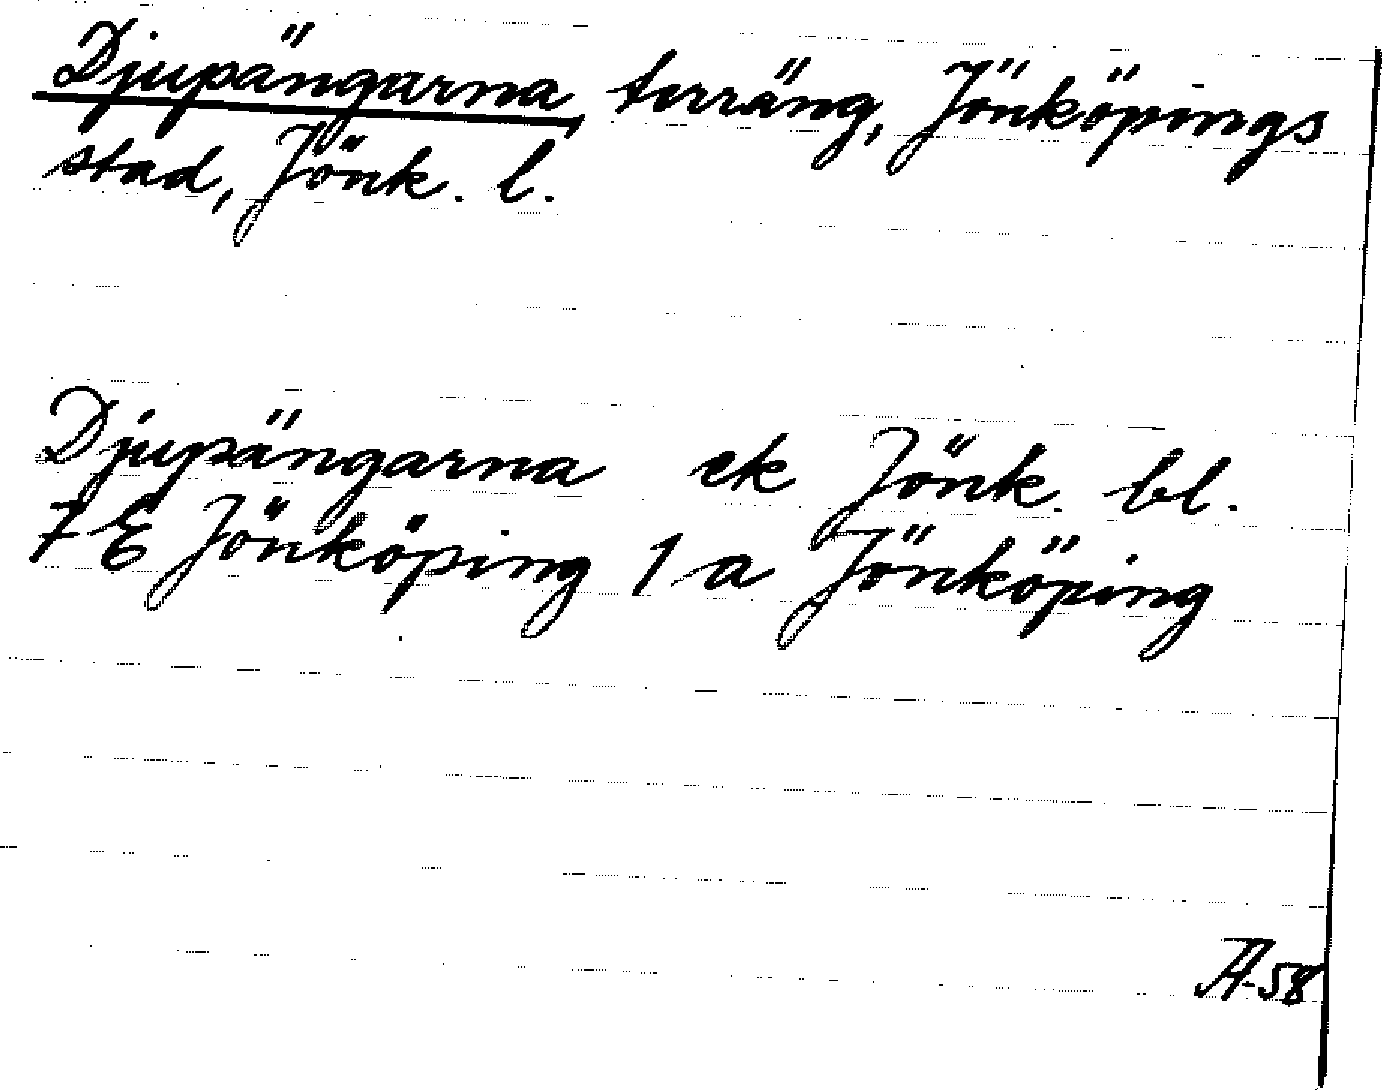 Djupängarna, terräng, Jönköpings
stad, Jönk. l.
Djupängarna ek Jönk. bl.
7 E Jönköping 1 a Jönköping
Ä-58